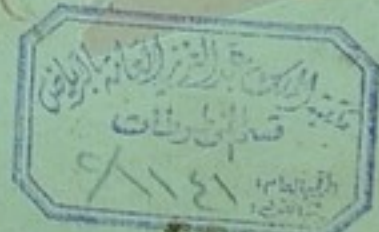 الملك عبد العزيز العامة بالرياض
قسم المخطوطات
الرقم العام: ١١٤١/٢